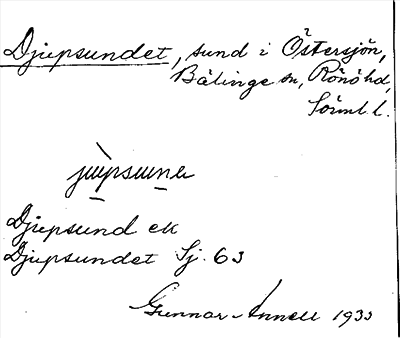 Djupsundet, sund i Östersjön,
Bälinge sn, Rönö hd,
Söml. l.
Djupsund ek
Djupsundet Sj. 63
Gunnar Annell 1933